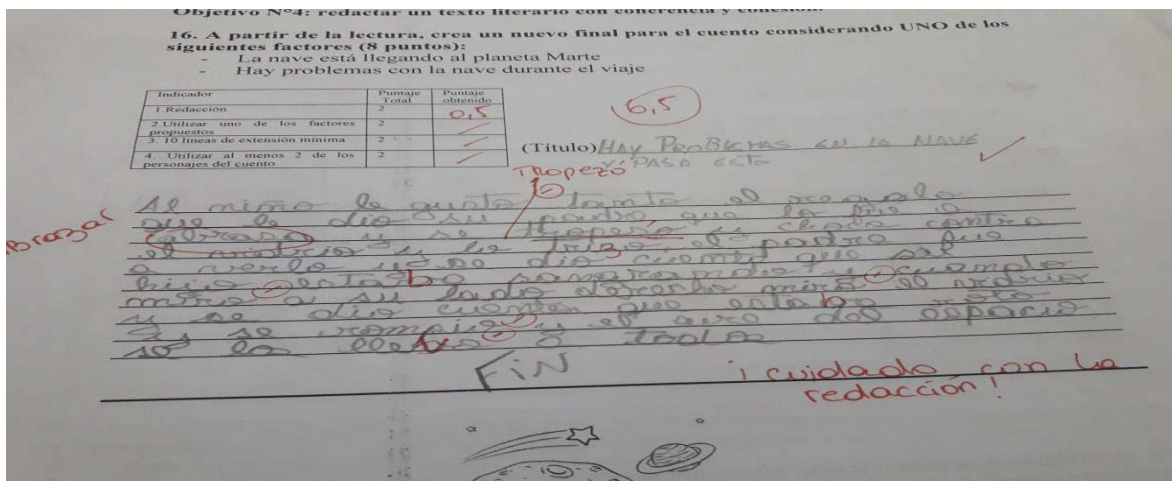 Objetivo N°4: redactar un texto literario con coherencia y cohesión.
16. A partir de la lectura, crea un nuevo final para el cuento considerando UNO de los
siguientes factores (8 puntos):
- La nave está llegando al planeta Marte
- Hay problemas con la nave durante el viaje
Indicador Puntaje Total Puntaje obtenido
1.Redacción 2 0,5
2.Utilizar uno de los factores propuestos 2
3. 10 líneas de extensión mínima 2
4. Utilizar al menos 2 de los personajes del cuento 2
6,5
(Título) HAY PROBLEMAS EN LA NAVE
Y PASA ESTO
Tropezó
Al niño le gusto tanto el regalo
que le dio su padre que lo fue a
Brazar
abrasar y se
y choco contra
el
y lo
el padre fue
a verlo y se dio cuenta que su
hijo estaba
y
mitro a su lado derecho miro el vidrio
y se dio cuenta que estaba roto
y se rompio y el aero del espacio
se los llebo a todos
FiN
¡cuidado con la
redacción!